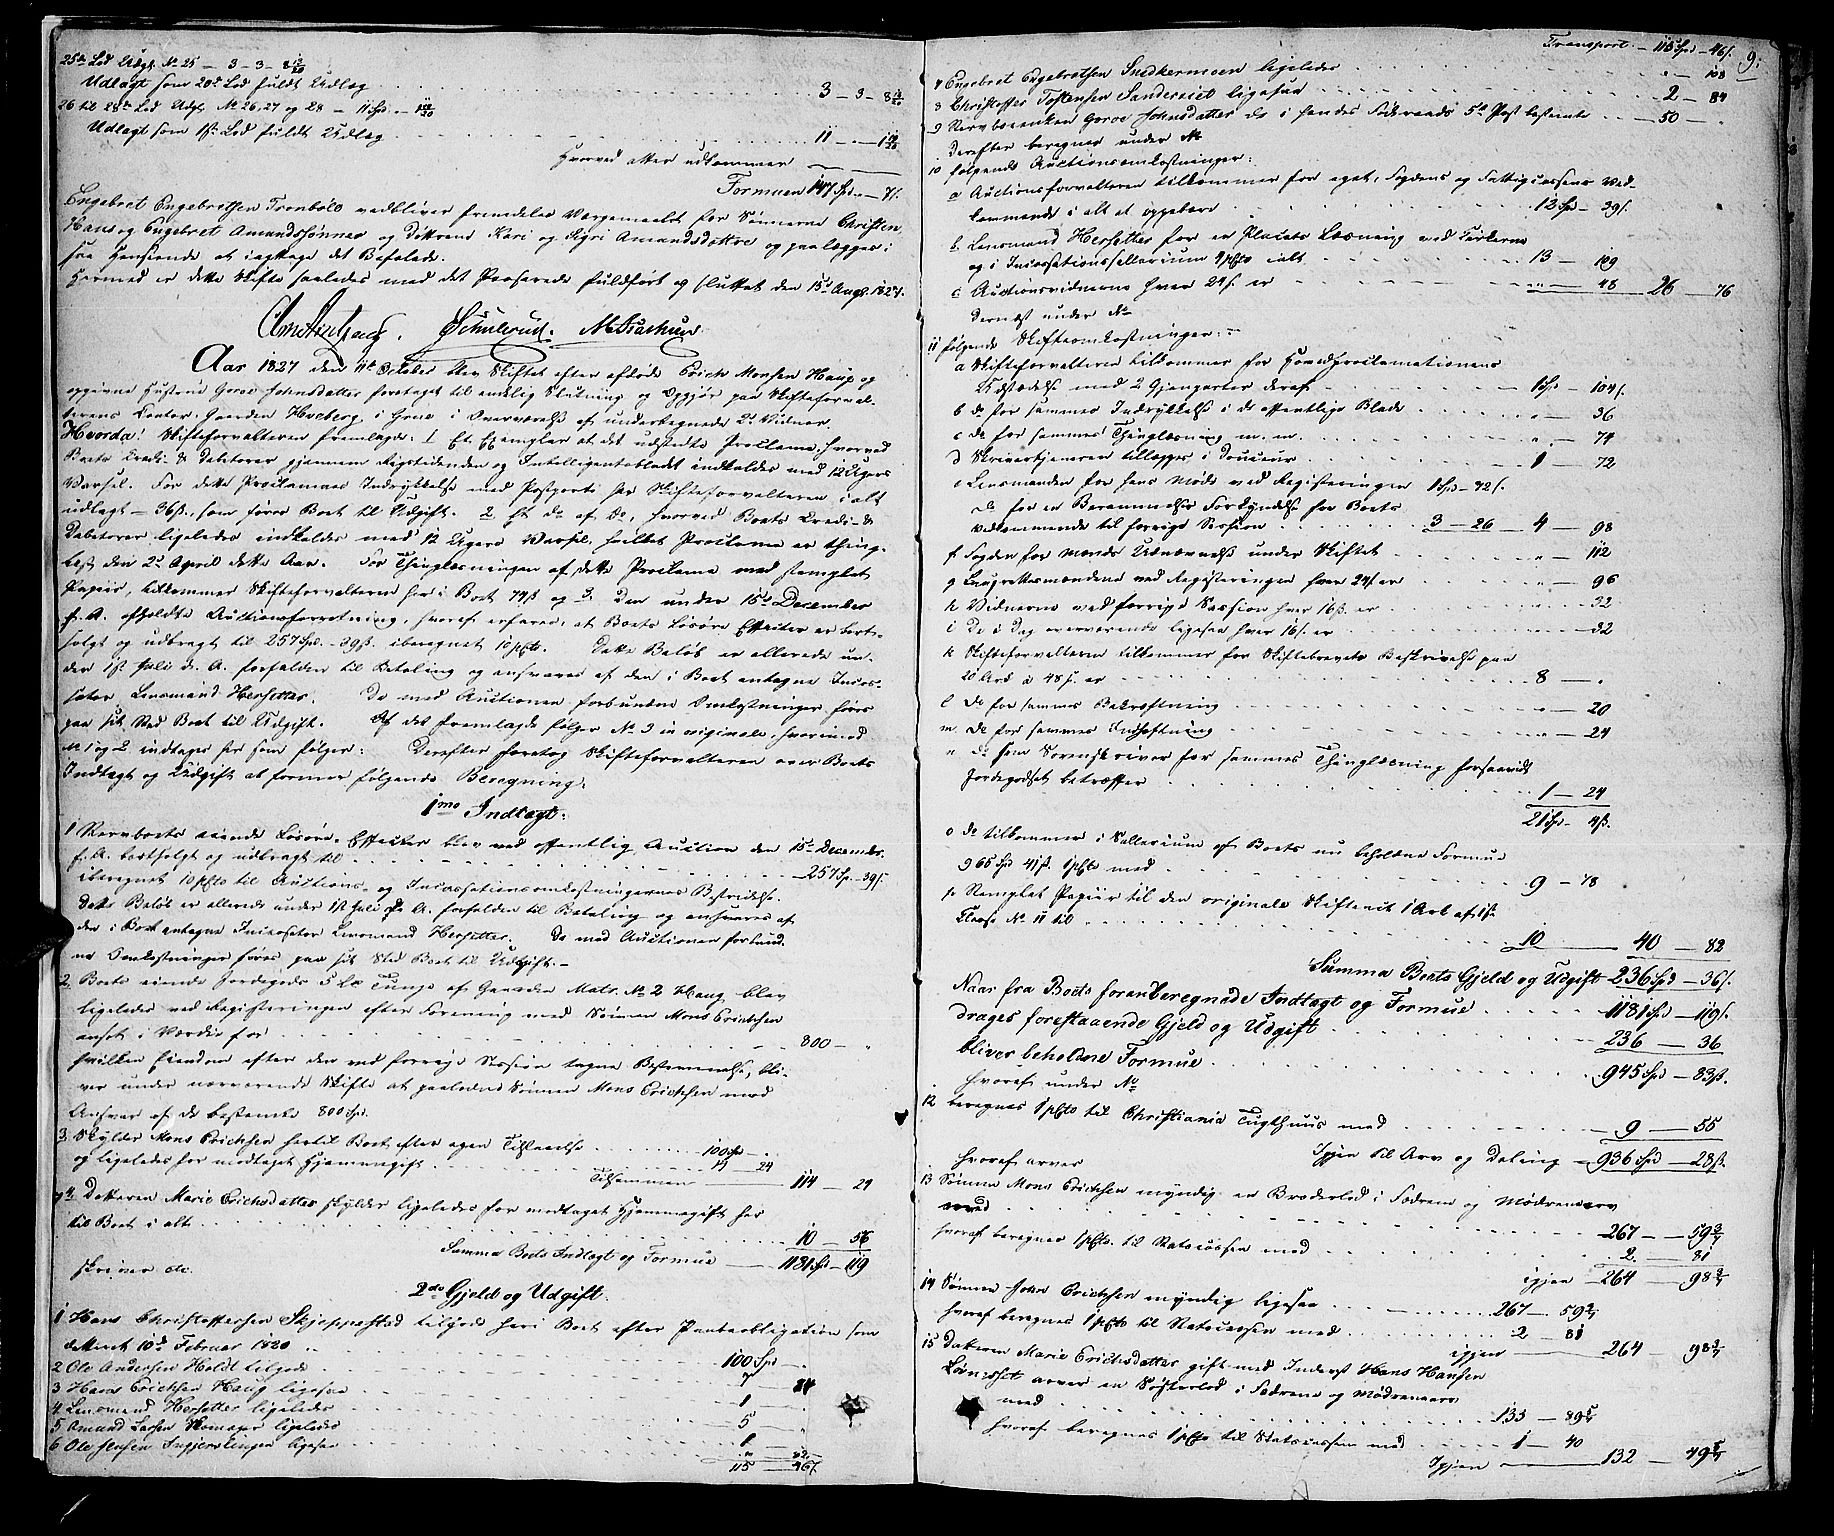 25de Lod Udgt. No 25 — 3 — 3 — 8 12/20
Udlagt som 20de Lod fuldt Udlæg . . . 3 — 3 — 8 12/20
26 til 28de Lod Udgt. No 26, 27 og 28 — 11 Spd —
Udlagt som 1ste Lod fuldt Udlæg . . . 11 — —
Hvorved atter udkommer
Formuen 147 Spd —
Engebret Engebretsen Tronbøl vedbliver fremdeles Værgemaalet for Sønnerne Christen,
Hans og Engebret Amundssønner og Døttrene Kari og Sigri Amundsdøttre og paalægges i
saa Henseende at iagttage det Befalede.
Hermed er dette Skifte saaledes med det Passerede fuldført og sluttet den 15de Augt. 1827.
Schulerud.
Aar 1827 den 11te October blev Skiftet efter afdøde Erich Monsen Haug og
opgivne Hustrue Goroe Johnsdatter foretaget til endelig Slutning og Opgjør paa Skifteforval-
terens Contor, Gaarden Hveberg i Grue i Overværelse af undertegnede 2de Vidner.
Hvorda! Skifteforvalteren fremlagde: 1 Et Exemplar af det udstedte Proclama, hvorved
Boets Credi- & Debitorer gjennem Rigstidenden og Intelligentsbladet indkaldes med 12 Ugers
Varsel. For dette Proclamas Indrykkelse med Postporto har Skifteforvalteren i alt
udlagt — 36 s, som føres Boet til Udgift. 2 Et do af do, hvorved Boets Credi- &
Debitorer ligeledes indkaldes med 12 Ugers Varsel, hvilket Proclama er thing-
læst den 2de April dette Aar. For Thinglæsningen af dette Proclama med stemplet
Papiir, tilkommer Skifteforvalteren her i Boet 74 s og 3. Den under 15de December
f. A. afholdte Auctionsforretning, hvoraf erfares, at Boets Løsøre Effecter er bort-
solgt og udbragt til 257 Spd. — 39 s. iberegnet 10 pCto. Dette Beløb er allerede un-
der 1ste Juli d. A. forfalden til Betaling og ansvares af den i Boet antagne Incas-
sator, Lensmand Hersetter. De med Auctionen forbundne Omkostninger føres
paa sit Sted Boet til Udgift. Af det fremlagde følger No 3 in originale, hvorimod
No 1 og 2 indtages her som følger: Derefter foretog Skifteforvalteren over Boets
Indtægt og Udgift at formere følgende Beregning:
1mo Indtægt:
1 Stervboets eiende Løsøre-Effecter blev ved offentlig Auction den 15de December
f. A. bortsolgt og udbragt til . . . 257 Sp. — 39 s.
iberegnet 10 pCto til Auctions- og Incassationsomkostningernes Bestridelse.
Dette Beløb er allerede under 1ste Juli d. A. forfalden til Betaling og ansvares af
den i Boet antagne Incassator Lensmand Hersetter. De med Auctionen forbund-
ne Omkostninger føres paa sit Sted Boet til Udgift.—
2. Boets eiende Jordegods 5 Lispd Tunge af Gaarden Matr. No 2 Haug blev
ligeledes ved Registeringen efter Forening med Sønnen Mons Erichsen
ansat i Værdie for . . . 800 — „
hvilken Eiendom efter den ved forrige Session tagne Bestemmelse, bli-
ver under nærværende Skifte at paalodne Sønnen Mons Erichsen mod
Ansvar af de bestemte 800 Spd.
3. Skylder Mons Erichsen hertil Boet efter egen Tilstaaelse . . . 100 Spd — „
og ligeledes for modtaget Hjemmegift . . . 14 — 24
Tilsammen — 114 — 24
4. Datteren Marie Erichsdatter skylder ligeledes for modtaget Hjemmegift her
til Boet i alt . . . 10 — 56
Summa Boets Indtægt og Formue — 1181 Spd — 119
skriver de.
2do Gjeld og Udgift.
1 Hans Christoffersen Skjeppestad tilgode heri Boet efter Pantobligation som
datteret 10de Februar 1820 . . . 100 Spd — „
2 Ole Andersen Holdt tilgode . . . 84
3 Hans Erichsen Haug ligesaa . . . 1 — „
4 Lensmand Hersetter ligeledes . . . 5 — „
5 Amund Larsen Skomager ligeledes . . . 1 — „
6 Ole Jensen Ingjerslingen ligesaa . . .
115 — 46 s.
Transport — 115 Spd — 46 s. 9.
7 Engebret Engebretsen Snedkermoen ligeledes . . . „ — 108
8 Christoffer Tostensen Sandersiet ligesaa . . . 2 — 84
9 Stervboeenken Goroe Johnsdatter de i hendes Føderaads 5te Post bestemte . . . 50 — „
Derefter beregnes under No
10 følgende Auctionsomkostninger:
a Auctionsforvalteren tilkommer for eget, Fogdens og Fattigcassens Ved-
kommende i alt at oppebære . . . 12 Spd — 39 s.
b. Lensmand Hersetter for en Placats Læsning ved Kirkerne
og i Incassationssallarium 4 pCto i alt . . . 13 — 109
c Auctionsvidnerne hver 24 s. er . . . „ — 48 — 26 — 76
Dernæst under No
11 følgende Skifteomkostninger:
a Skifteforvalteren tilkommer for Hovedproclamationens
Udstædelse med 2 Gjenparter deraf . . . 1 Spd — 104 s.
b do for sammes Indrykkelse i de offentlige Blade . . . „ — 36
c do for sammes Thinglæsning m. m. . . . „ — 74
d Skrivertjeneren tillægges i Douceur . . . 1 — 72
e Lensmanden for hans Møde ved Registeringen 1 Spd — 72 s.
Do for en Berammelses Forkyndelse for Boets
Vedkommende til forrige Session . . . 3 — 26 — 4 — 98
f Fogden for Mænds Udnævnelse under Skiftet . . . „ — 112
g Laugrettesmændene ved Registeringen hver 24 s. er . . . „ — 96
h Vidnerne ved forrige Session hver 16 s. er . . . „ — 32
i De i Dag overværende ligesaa hver 16 s. er . . . „ — 32
k Skifteforvalteren tilkommer for Skiftebrevets Beskrivelse paa
20 Ark à 48 s. er . . . 8 — „
l Do for sammes Bekræftning . . . „ — 20
m do for sammes Indheftning . . . „ — 24
n do som Sorenskriver for sammes Thinglæsning forsaavidt
Jordegodset betræffer . . . 1 — 24
21 Spd — 4 s.
o do tilkommer i Sallarium af Boets nu beholdne Formue
966 Spd 41 s. 1 pCto med . . . 9 — 78
p Stemplet Papiir til den originale Skifteact 1 Ark af 1ste
Classe No 11 til . . . 10 — 40 — 82
Summa Boets Gjeld og Udgift 236 Spd — 36 s.
Naar fra Boets foranberegnede Indtægt og Formue . . . 1181 Spd — 119 s.
drages forestaaende Gjeld og Udgift . . . 236 — 36
bliver beholdne Formue . . . 945 Spd — 83 s.
hvoraf under No
12 beregnes 1 pCto til Christiania Tugthuus med . . . 9 — 55
Igjen til Arv og Deling — 936 Spd — 28 s.
hvoraf arver
13 Sønnen Mons Erichsen myndig en Broderlod i Fædrene og Mødrenearv
med . . . 267 — 59 3/7
hvoraf beregnes 1 pCto. til Statscassen med . . . 2 — 81
igjen — 264 — 98 3/7
14 Sønnen John Erichsen myndig ligesaa . . . 267 — 59 3/7
hvoraf beregnes 1 pCto til Statscassen med . . . 2 — 81
igjen — 264 — 98 3/7
15 Datteren Marie Erichsdatter gift med Inderst Hans Hansen
arver en Søsterlod i Fædrene og Mødrenearv
med . . . 133 — 89 5/7
hvoraf beregnes 1 pCto til Statscassen med . . . 1 — 40
Igjen — 132 — 49 5/7